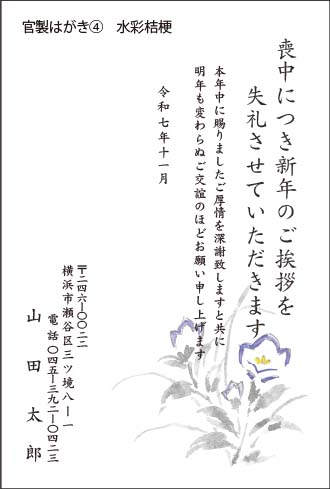 官製はがき④　水彩桔梗
喪中につき新年のご挨拶を
失礼させていただきます
本年中に賜りましたご厚情を深謝致しますと共に
明年も変わらぬご交誼のほどお願い申し上げます
令和七年十一月
〒二四六ー〇〇二二
横浜市瀬谷区三ツ境八ー一
電話〇四五ー三九二ー〇四二三
山田太郎